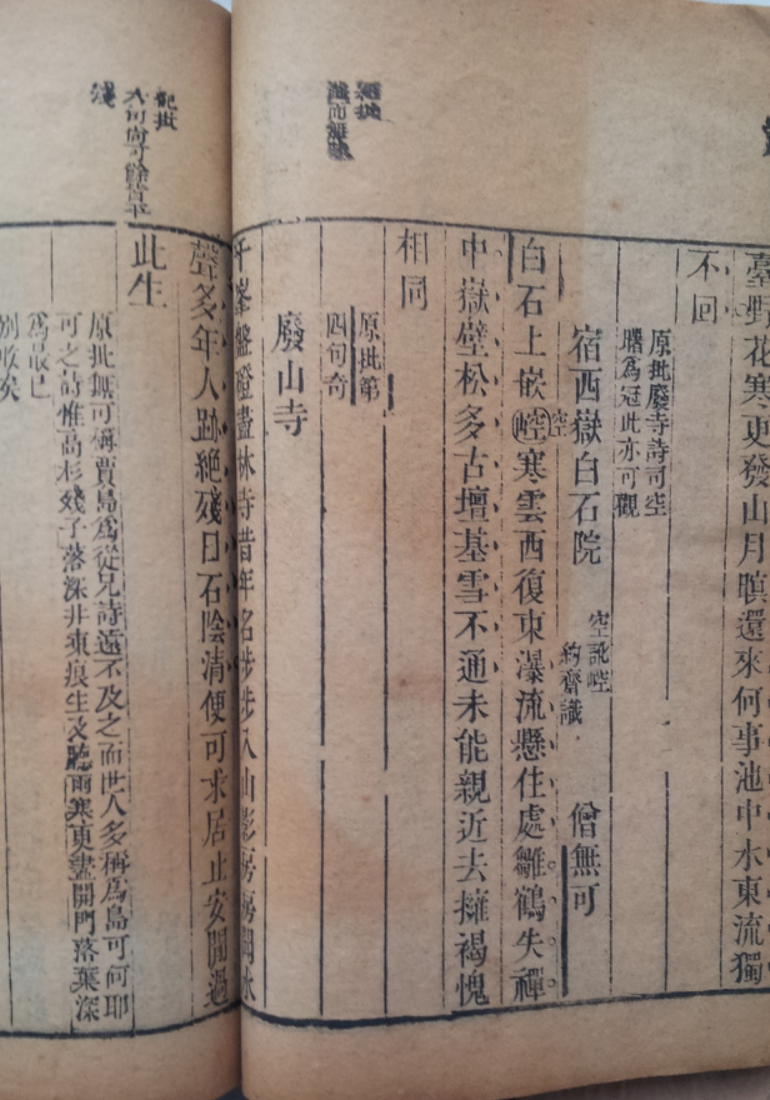 臺野花寒更發山月暝還來何事池中水東流獨
不回
原批廢寺詩司空
曙爲冠此亦可觀
宿西嶽白石院
空訛崆
紉齋識
僧無可
白石上嵌崆寒雲西復東瀑流懸住處雛鶴失禪
空
中嶽壁松多古壇基雪不通未能親近去擁褐愧
相同
紀批
而
原批第
四句奇
廢山寺
千峯盤磴盡林寺昔年名步步入山影房房聞水
聲多年人跡絶殘日石陰清便可求居止安閒過
此生
紀批
六句尚可餘皆平
淺
原批無可稱賈島爲從兄詩遠不及之而世人多稱爲島可何耶
可之詩惟高杉殘子落深井凍痕生及聽雨寒更盡開門落葉深
爲最已
別收矣